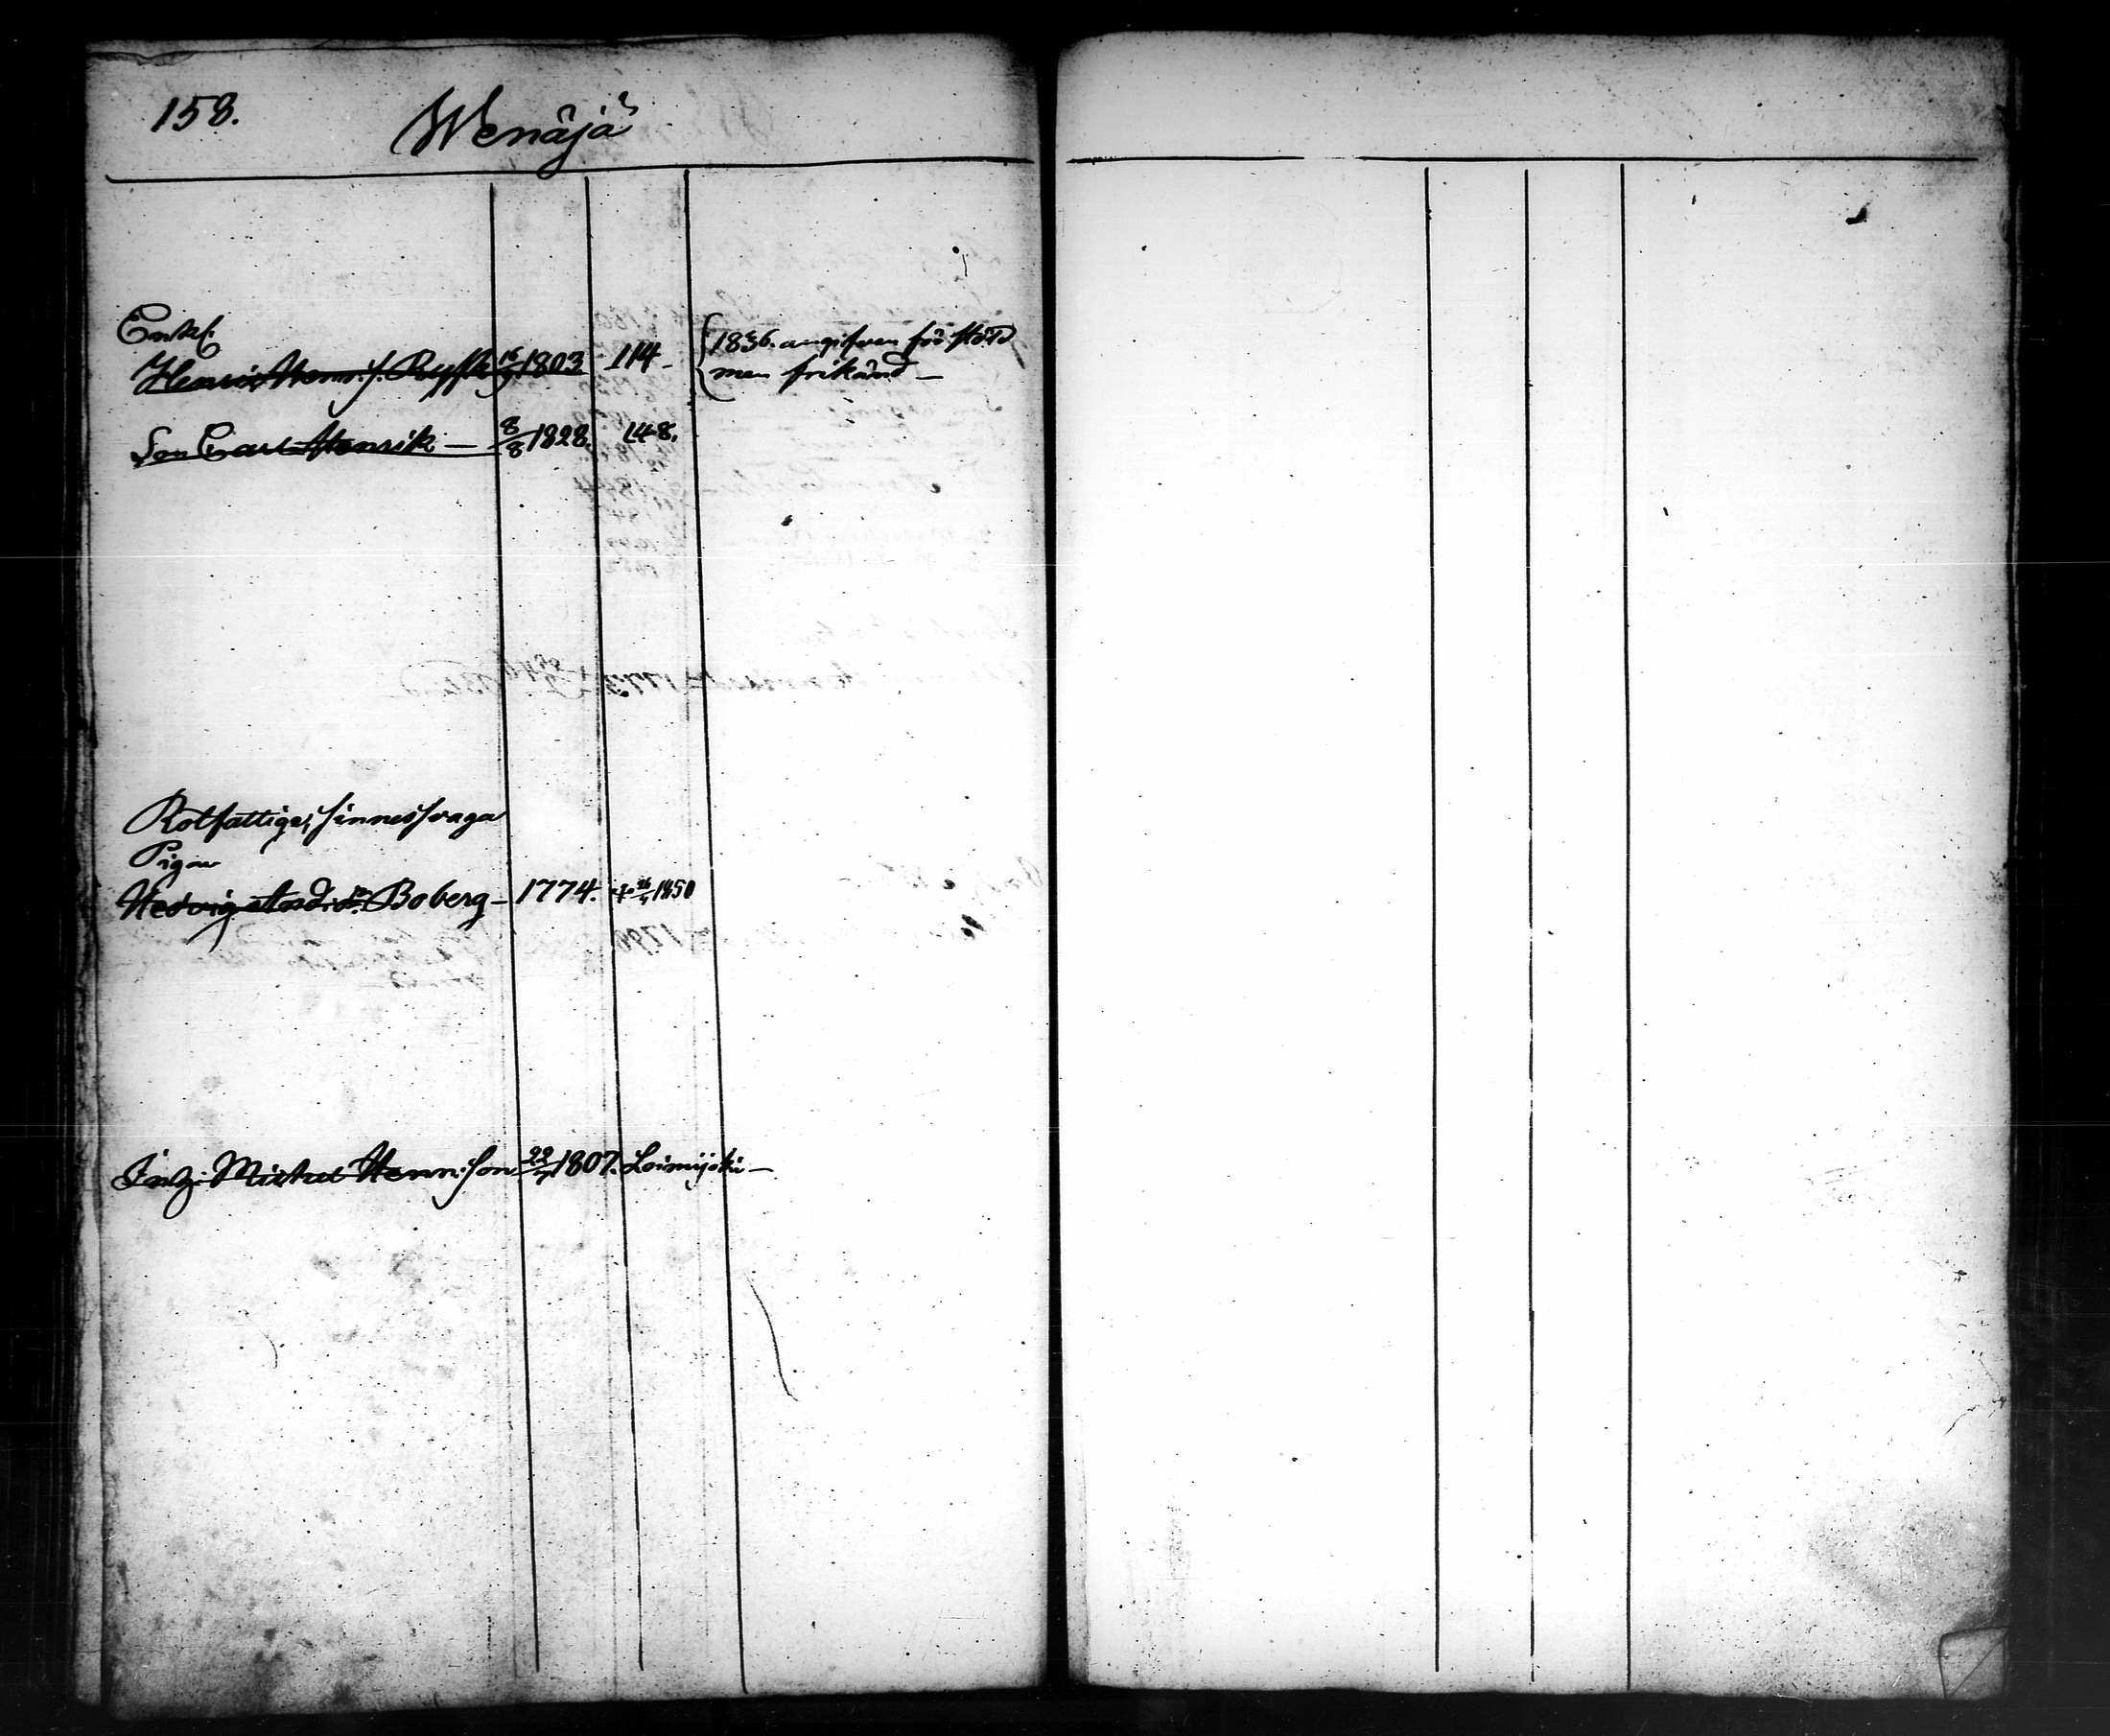 158.
Wenäjä
Enkl.
Henric Henri:s. Rysk 16 1803 114 - 1836. angifven för stöld
men frikänd -
Son Carl Henrik - 8/8 1828. 148.
Rotfattige, sinnessvaga
Pigan
Hedvig And:dr Boberg - 1774. + 1850
Inh: Michel Henr:son 22 1807. Loimijoki -